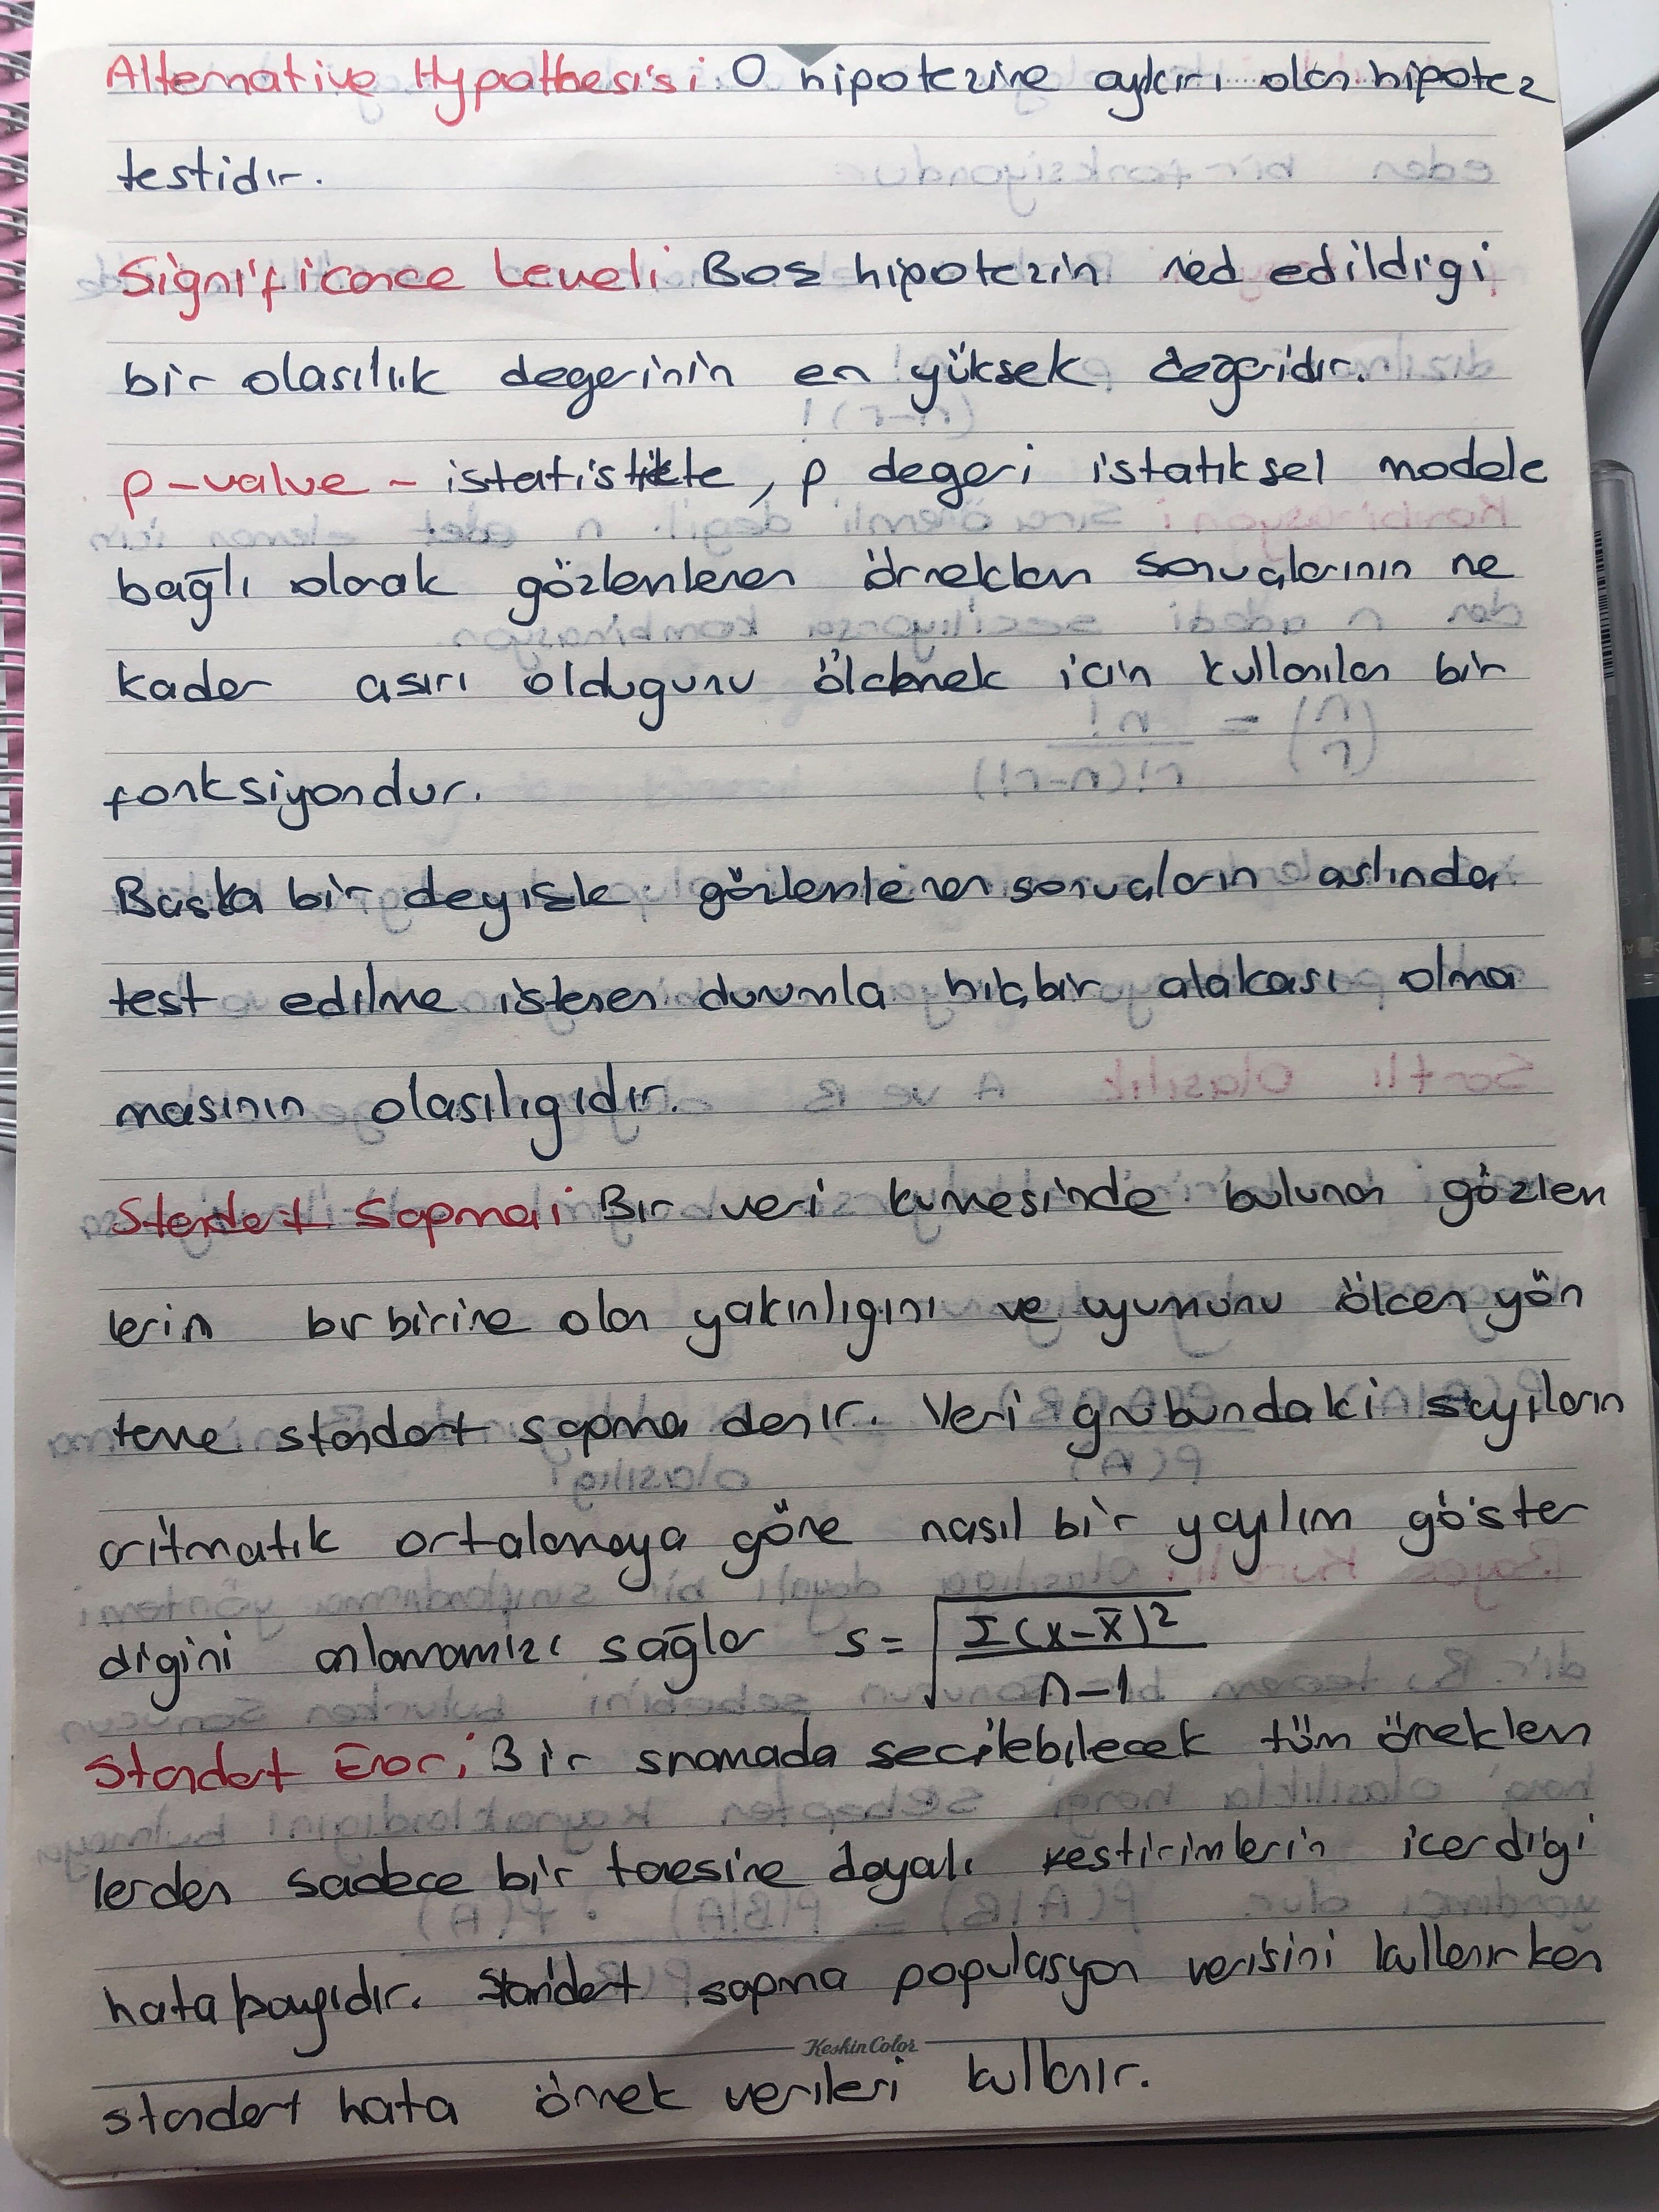 Alternative Hypothesis: 0 hipotezine aykırı olan hipotez
testidir.
Significance Level: Bos hipotezin red edildigi
bir olasılık degerinin en yüksek degeridir.
p-value - istatistikte, p degeri istatiksel modele
bağlı olarak gözlemlenen örneklem sonuçlarının ne
kadar asırı oldugunu ölcmek icin kullanılan bir
fonksiyondur.
Baska bir deyisle gözlemlenen sonuçların aslında
test edilme istenen durumla hiçbir alakası olma
masının olasılıgıdır.
Standart Sapma: Bir veri kumesinde bulunan gözlem
lerin birbirine olan yakınlıgını ve uyumunu ölcen yön
teme standart sapma denir. Veri grubundaki sayıların
aritmatik ortalamaya göre nasıl bir yayılım göster
digini anlamamızı sağlar s = √Σ(x-x̄)² / n-1
Standart Error: Bir sınamada secilebilecek tüm örneklem
lerden sadece bir tanesine dayalı kestirimlerin icerdigi
hata payıdır. Standart sapma populasyon verisini kullanırken
KeskinColor
standart hata örnek verileri kullanır.